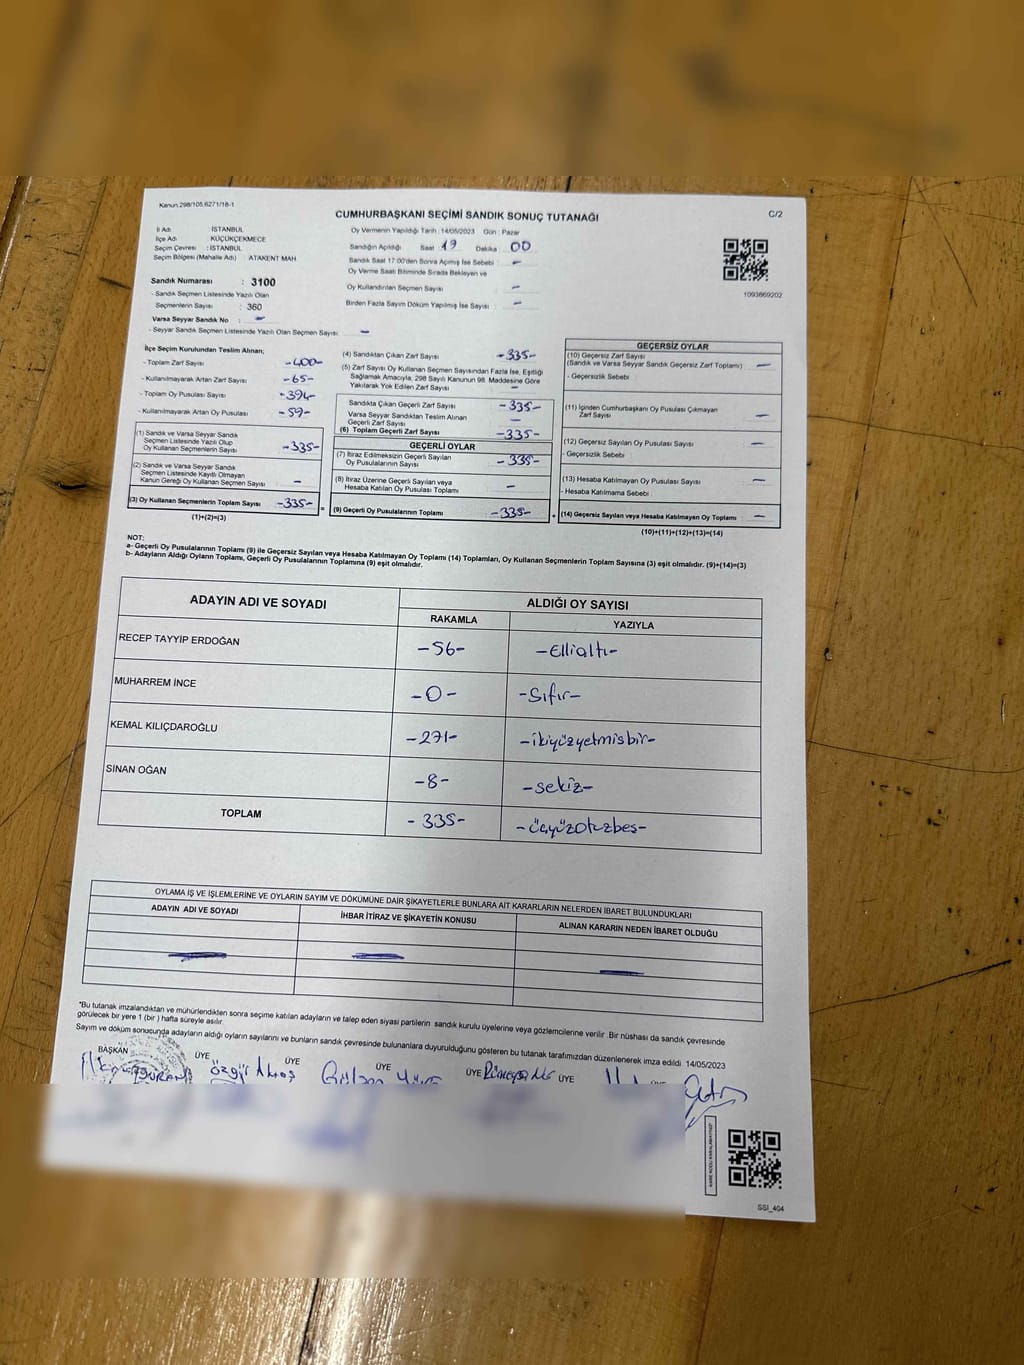 Kanun:298/105,6271/18-1
CUMHURBAŞKANI SEÇİMİ SANDIK SONUÇ TUTANAĞI
C/2
İl Adı : İSTANBUL
İlçe Adı : KÜÇÜKÇEKMECE
Seçim Çevresi : İSTANBUL
Seçim Bölgesi (Mahalle Adı) ATAKENT MAH
Oy Vermenin Yapıldığı Tarih : 14/05/2023 Gün : Pazar
Sandığın Açıldığı Saat : 19 Dakika : 00
Sandık Saat 17:00'den Sonra Açılmış İse Sebebi : -
Oy Verme Saati Bitiminde Sırada Bekleyen ve
Oy Kullandırılan Seçmen Sayısı : -
Birden Fazla Sayım Döküm Yapılmış İse Sayısı : -
1093869202
Sandık Numarası : 3100
- Sandık Seçmen Listesinde Yazılı Olan
Seçmenlerin Sayısı : 360
Varsa Seyyar Sandık No : -
- Seyyar Sandık Seçmen Listesinde Yazılı Olan Seçmen Sayısı: -
İlçe Seçim Kurulundan Teslim Alınan;
- Toplam Zarf Sayısı -400-
- Kullanılmayarak Artan Zarf Sayısı -65-
- Toplam Oy Pusulası Sayısı -394-
- Kullanılmayarak Artan Oy Pusulası -59-
(1) Sandık ve Varsa Seyyar Sandık
Seçmen Listesinde Yazılı Olup
Oy Kullanan Seçmenlerin Sayısı -335-
(2) Sandık ve Varsa Seyyar Sandık
Seçmen Listesinde Kayıtlı Olmayan
Kanun Gereği Oy Kullanan Seçmen Sayısı -
(3) Oy Kullanan Seçmenlerin Toplam Sayısı -335-
(1)+(2)=(3)
(4) Sandıktan Çıkan Zarf Sayısı -335-
(5) Zarf Sayısı Oy Kullanan Seçmen Sayısından Fazla İse, Eşitliği
Sağlamak Amacıyla, 298 Sayılı Kanunun 98. Maddesine Göre
Yakılarak Yok Edilen Zarf Sayısı -
Sandıkta Çıkan Geçerli Zarf Sayısı -335-
Varsa Seyyar Sandıktan Teslim Alınan
Geçerli Zarf Sayısı -
(6) Toplam Geçerli Zarf Sayısı -335-
GEÇERLİ OYLAR
(7) İtiraz Edilmeksizin Geçerli Sayılan
Oy Pusulalarının Sayısı -335-
(8) İtiraz Üzerine Geçerli Sayılan veya
Hesaba Katılan Oy Pusulası Toplamı -
(9) Geçerli Oy Pusulalarının Toplamı -335-
GEÇERSİZ OYLAR
(10) Geçersiz Zarf Sayısı
(Sandık ve Varsa Seyyar Sandık Geçersiz Zarf Toplamı) -
- Geçersizlik Sebebi :
(11) İçinden Cumhurbaşkanı Oy Pusulası Çıkmayan
Zarf Sayısı -
(12) Geçersiz Sayılan Oy Pusulası Sayısı -
- Geçersizlik Sebebi :
(13) Hesaba Katılmayan Oy Pusulası Sayısı -
- Hesaba Katılmama Sebebi :
(14) Geçersiz Sayılan veya Hesaba Katılmayan Oy Toplamı -
(10)+(11)+(12)+(13)=(14)
NOT:
a- Geçerli Oy Pusulalarının Toplamı (9) ile Geçersiz Sayılan veya Hesaba Katılmayan Oy Toplamı (14) Toplamları, Oy Kullanan Seçmenlerin Toplam Sayısına (3) eşit olmalıdır. (9)+(14)=(3)
b- Adayların Aldığı Oyların Toplamı, Geçerli Oy Pusulalarının Toplamına (9) eşit olmalıdır.
ADAYIN ADI VE SOYADI ALDIĞI OY SAYISI
RAKAMLA YAZIYLA
RECEP TAYYİP ERDOĞAN -56- -Ellialtı-
MUHARREM İNCE -0- -Sıfır-
KEMAL KILIÇDAROĞLU -271- -ikiyüzyetmişbir-
SİNAN OĞAN -8- -sekiz-
TOPLAM -335- -üçyüzotuzbeş-
OYLAMA İŞ VE İŞLEMLERİNE VE OYLARIN SAYIM VE DÖKÜMÜNE DAİR ŞİKAYETLERLE BUNLARA AİT KARARLARIN NELERDEN İBARET BULUNDUKLARI
ADAYIN ADI VE SOYADI İHBAR İTİRAZ VE ŞİKAYETİN KONUSU ALINAN KARARIN NEDEN İBARET OLDUĞU
*Bu tutanak imzalandıktan ve mühürlendikten sonra seçime katılan adayların ve talep eden siyasi partilerin sandık kurulu üyelerine veya gözlemcilerine verilir. Bir nüshası da sandık çevresinde
görülecek bir yere 1 (bir) hafta süreyle asılır.
Sayım ve döküm sonucunda adayların aldığı oyların sayılarını ve bunların sandık çevresinde bulunanlara duyurulduğunu gösteren bu tutanak tarafımızdan düzenlenerek imza edildi. 14/05/2023
BAŞKAN ÜYE ÜYE ÜYE ÜYE ÜYE
SSİ_404